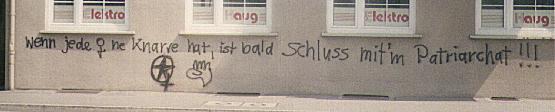 Elektro Haug Elektro Haug
Wenn jede ♀ ne Knarre hat, ist bald Schluss mit'm Patriarchat !!!